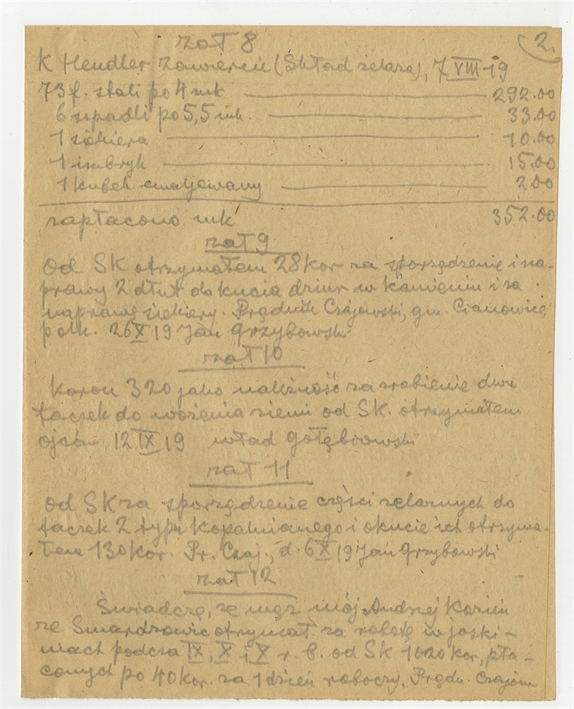 2.
zał 8
K Hendler Zawiercie (Skład żelaza), 7 VIII 19
73 f. stali po 4 mk 292.00
6 szpadli po 5,5 mk. 33.00
1 siekiera 10.00
1 imbryk 15.00
1 kubek emaljowany 2.00
zapłacono mk 352.00
zał 9
Od SK otrzymałem 28 kor za sporządzenie i na-
prawę 2 dłut do kucia dziur w kamieniu i za
naprawę siekiery. Prądnik Czajowski, gm. Cianowice
p olk. 26 X 19 Jan Grzybowski
zał 10
Koron 320 jako należność za zrobienie dwu
taczek do wożenia ziemi od SK. otrzymałem
Ojców 12 IX 19 Wład Gołębiowski
zał 11
od SK za sporządzenie części żelaznych do
taczek 2 typu kopalnianego i okucie ich otrzyma-
łem 130 kor. Pr. Czaj., d. 6 X 19 Jan Grzybowski
zał 12
Świadczę, że mąż mój Andrzej Korzeń
ze Smardzowic otrzymał za robotę w jaski-
niach podczas IX, X i X r. b. od SK 1020 kor, pła-
conych po 40 kor. za 1 dzień roboczy. Prądn. Czajow